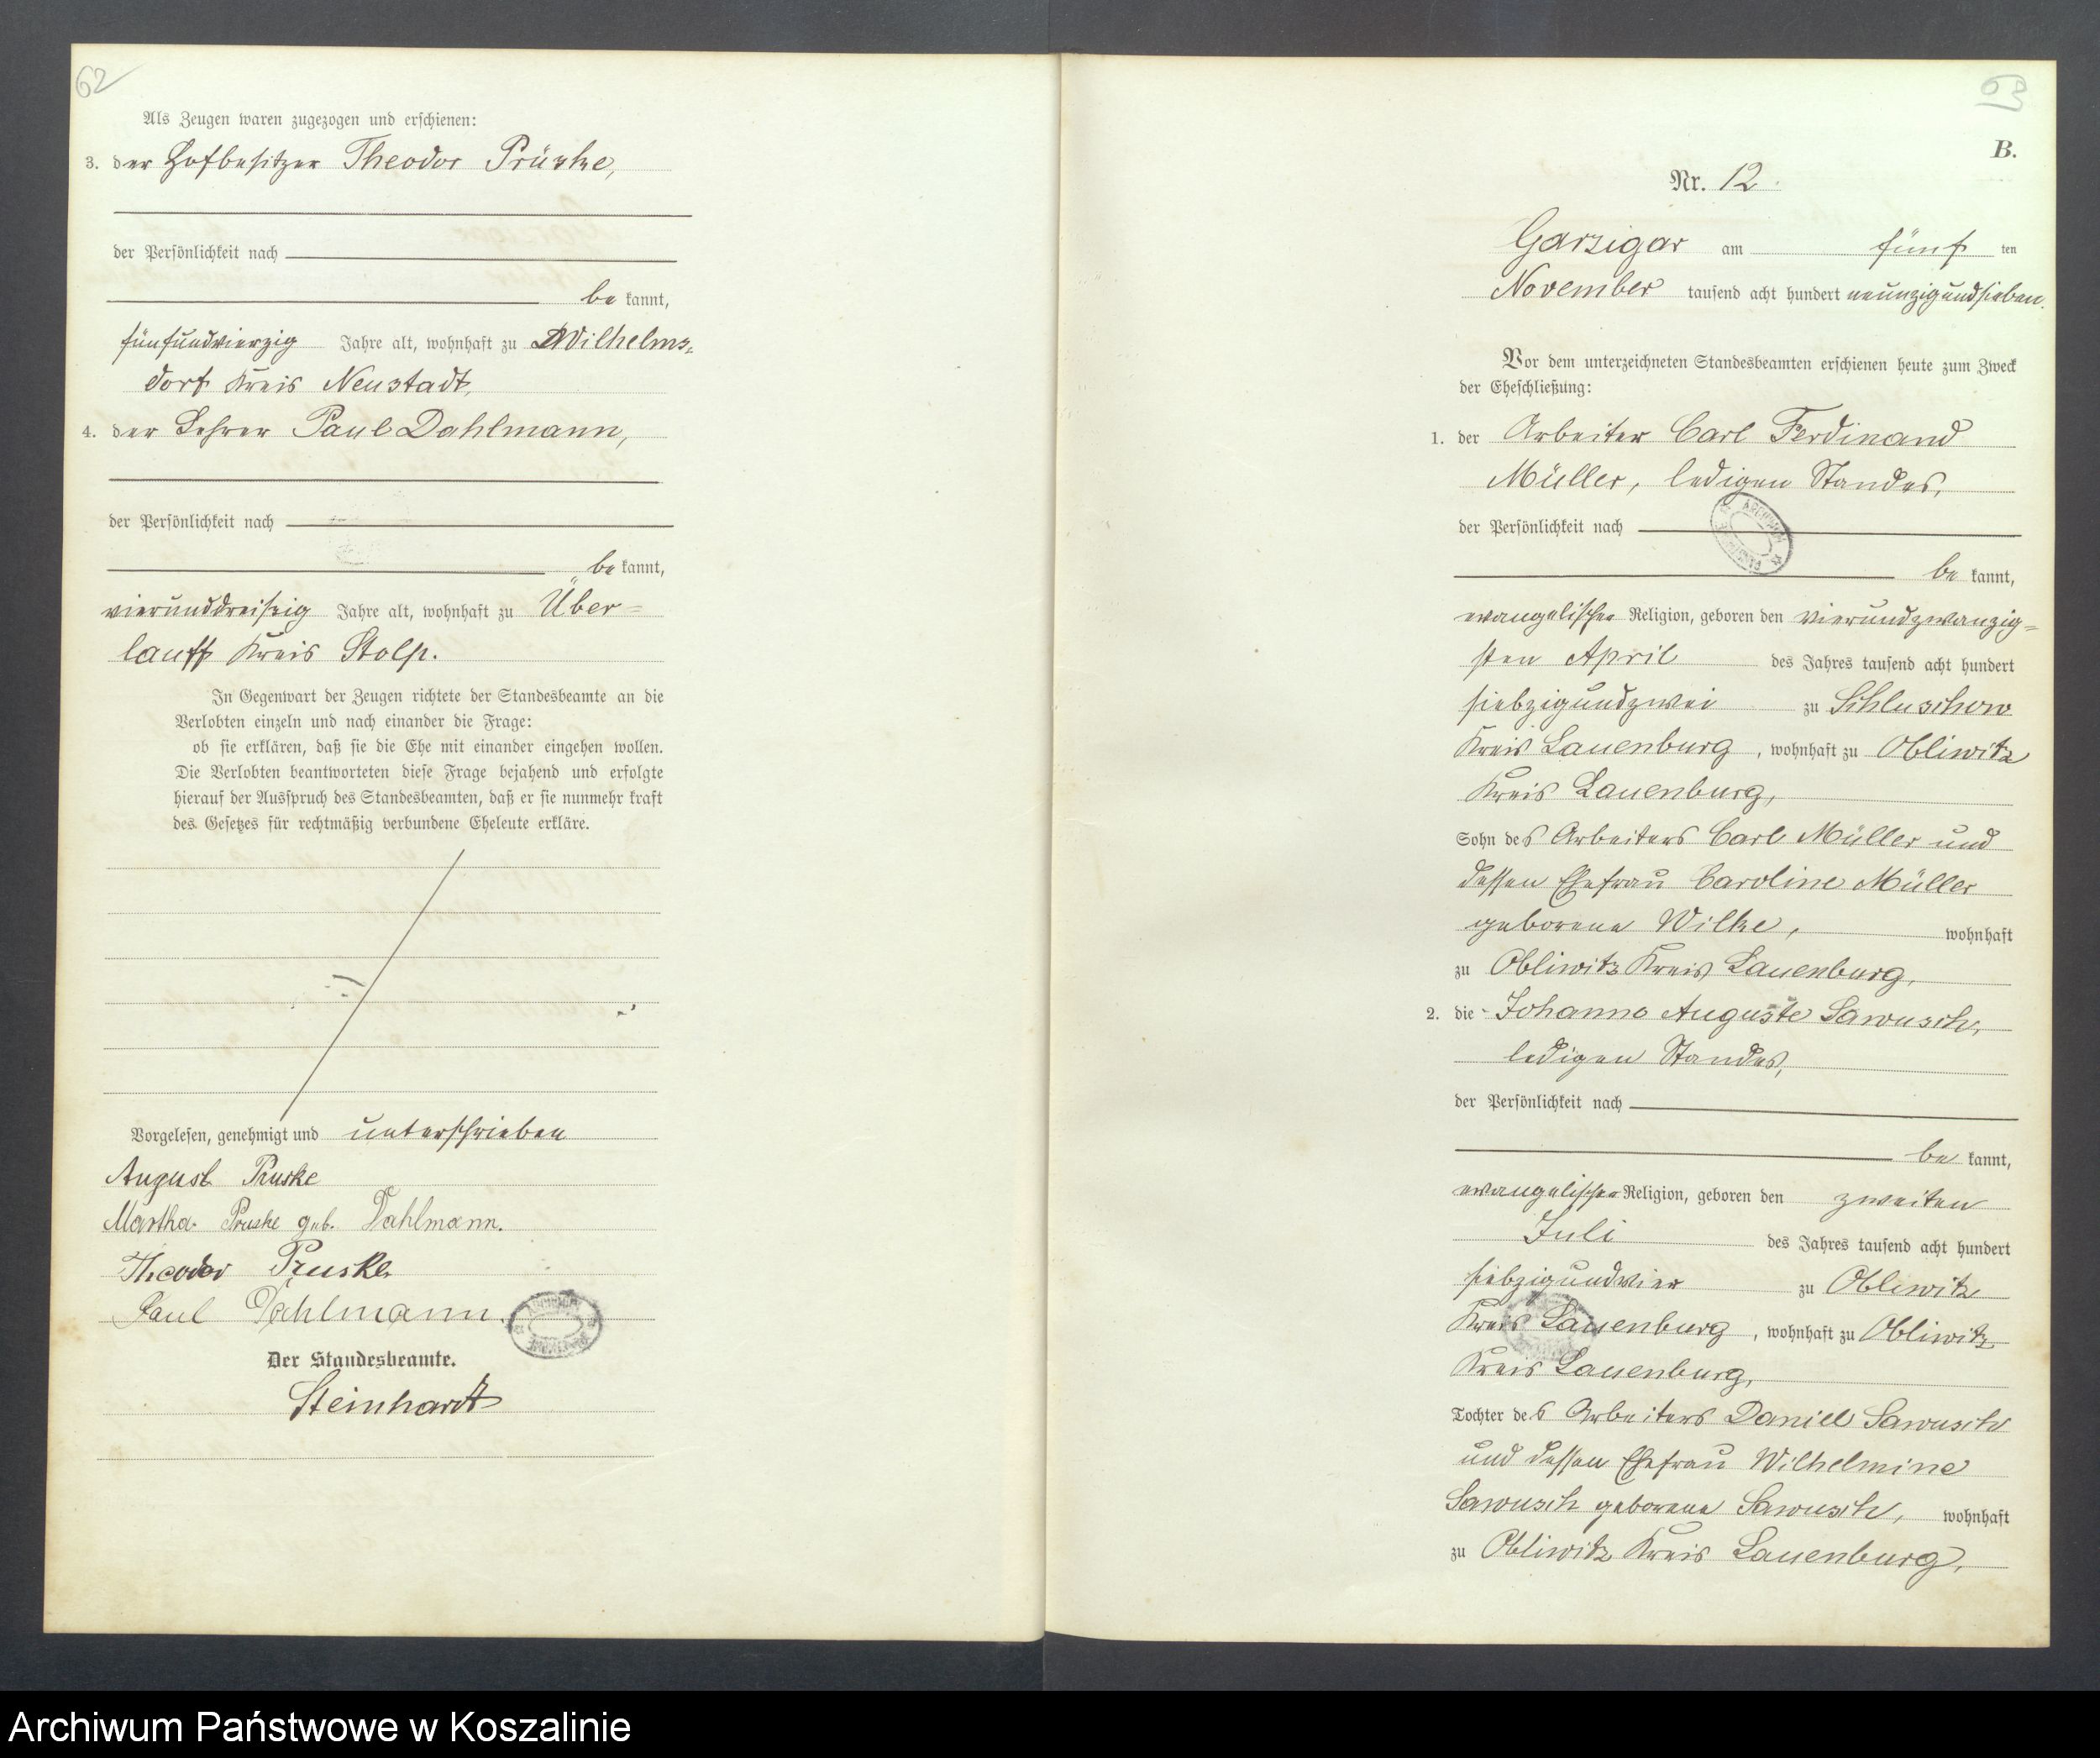 62
Als Zeugen waren zugezogen und erschienen:
3. der Hofbesitzer Theodor Prüske,
der Persönlichkeit nach
be kannt,
fünfundvierzig Jahre alt, wohnhaft zu Wilhelms-
dorf Kreis Neustadt,
4. der Lehrer Paul Dahlmann,
der Persönlichkeit nach
be kannt,
vierunddreißig Jahre alt, wohnhaft zu Über-
lauff Kreis Stolp.
In Gegenwart der Zeugen richtete der Standesbeamte an die
Verlobten einzeln und nach einander die Frage:
ob sie erklären, daß sie die Ehe mit einander eingehen wollen.
Die Verlobten beantworteten diese Frage bejahend und erfolgte
hierauf der Ausspruch des Standesbeamten, daß er sie nunmehr kraft
des Gesetzes für rechtmäßig verbundene Eheleute erkläre.
Vorgelesen, genehmigt und unterschrieben
August Pruske
Martha Pruske geb. Dahlmann.
Theodor Pruske
Paul Dahlmann.
Der Standesbeamte.
Steinhardt
63
B.
Nr. 12
Garzigar am fünf ten
November tausend acht hundert neunzigundsieben.
Vor dem unterzeichneten Standesbeamten erschienen heute zum Zweck
der Eheschließung:
1. der Arbeiter Carl Ferdinand
Müller, ledigen Standes,
der Persönlichkeit nach
be kannt,
evangelischer Religion, geboren den vierundzwanzig-
sten April des Jahres tausend acht hundert
siebzigundzwei zu Schluschow
Kreis Lauenburg, wohnhaft zu Obliwitz
Kreis Lauenburg,
Sohn des Arbeiters Carl Müller und
dessen Ehefrau Caroline Müller
geborene Wilke, wohnhaft
zu Obliwitz Kreis Lauenburg,
2. die Johanne Auguste Sawusch,
ledigen Standes,
der Persönlichkeit nach
be kannt,
evangelischer Religion, geboren den zweiten
Juli des Jahres tausend acht hundert
siebzigundvier zu Obliwitz
Kreis Lauenburg, wohnhaft zu Obliwitz
Kreis Lauenburg,
Tochter des Arbeiters Daniel Sawusch
und dessen Ehefrau Wilhelmine
Sawusch geborene Sawusch, wohnhaft
zu Obliwitz Kreis Lauenburg,
Archiwum Państwowe w Koszalinie